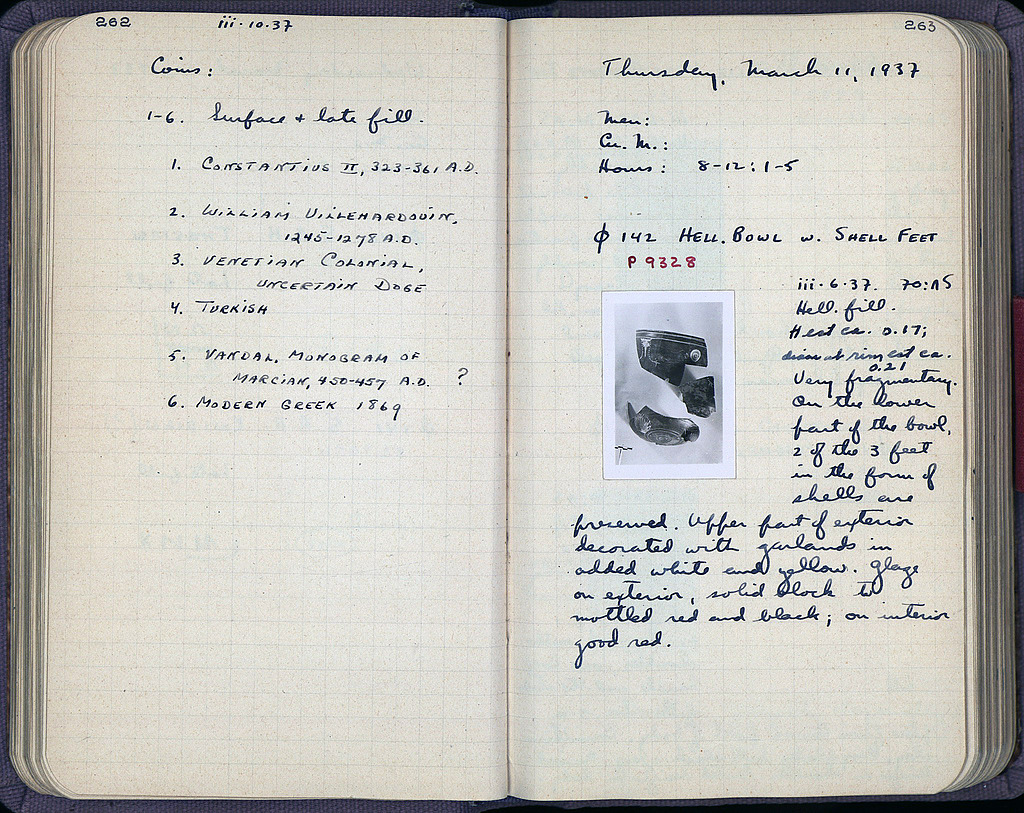 262
iii·10·37
Coins:
1-6. Surface + late fill.
1. CONSTANTIUS II, 323-361 A.D.
2. WILLIAM VILLEHARDOUIN,
1245-1278 A.D.
3. VENETIAN COLONIAL,
UNCERTAIN DOGE
4. TURKISH
5. VANDAL, MONOGRAM OF
MARCIAN, 450-457 A.D. ?
6. MODERN GREEK 1869
263
Thursday, March 11, 1937
Men:
Cu. M.:
Hours: 8-12: 1-5
ϕ 142 HELL. BOWL W. SHELL FEET
P 9328
iii·6·37. 70:ΛS
Hell. fill.
H est ca. 0.17;
diam at rim est ca.
0.21
Very fragmentary.
On the lower
part of the bowl,
2 of the 3 feet
in the form of
shells are
preserved. Upper part of exterior
decorated with garlands in
added white and yellow. Glaze
on exterior, solid black to
mottled red and black; on interior
good red.